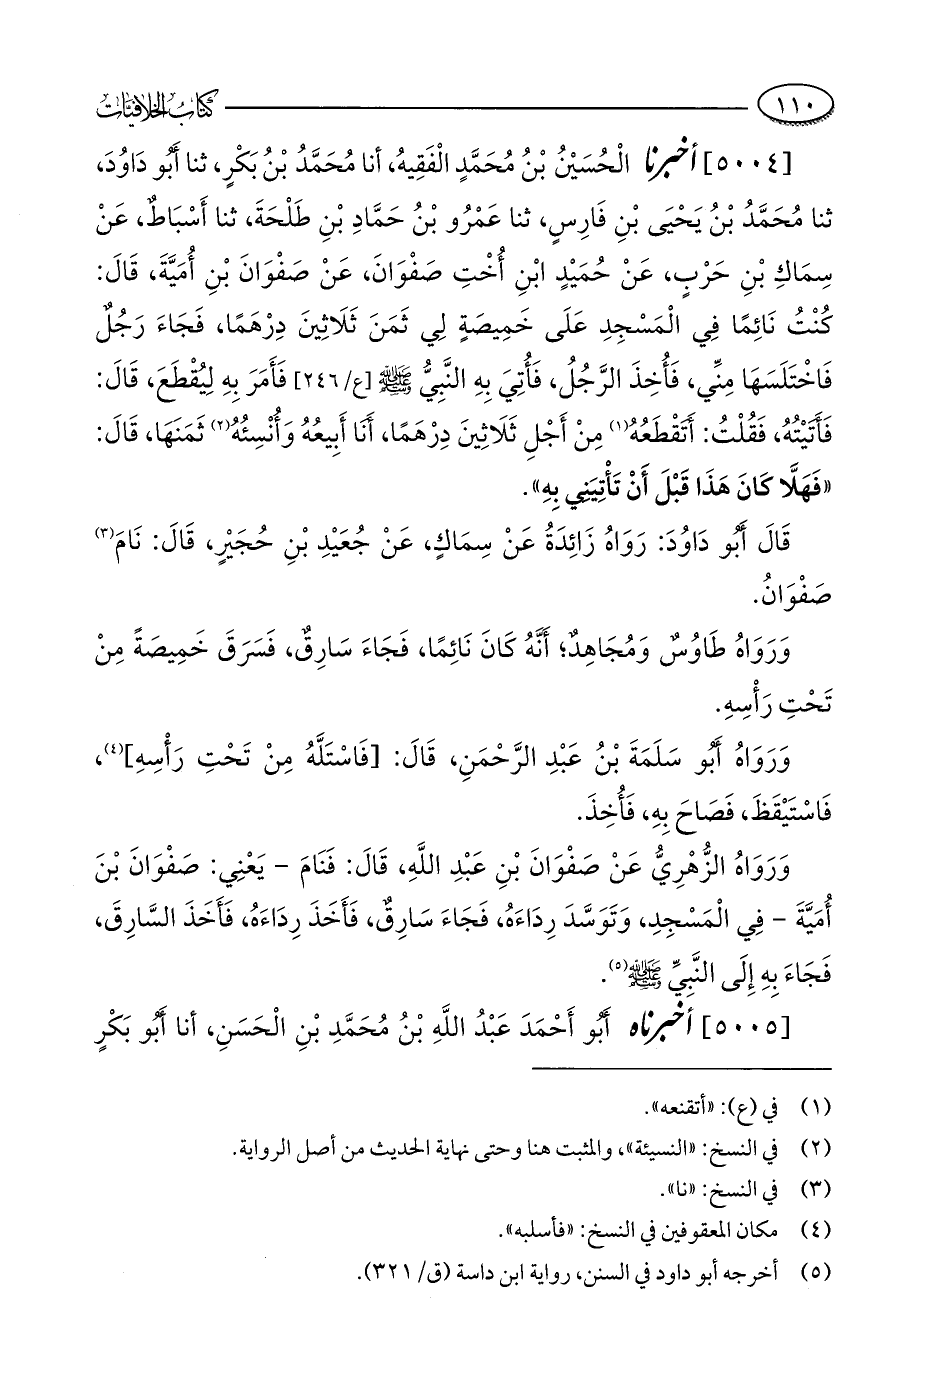 ١١٠ كتاب الخلافيات
[٥٠٠٤] أخبرنا الْحُسَيْنُ بْنُ مُحَمَّدٍ الْفَقِيهُ، أنا مُحَمَّدُ بْنُ بَكْرٍ، ثنا أَبُو دَاوُدَ،
ثنا مُحَمَّدُ بْنُ يَحْيَى بْنِ فَارِسٍ، ثنا عَمْرُو بْنُ حَمَّادِ بْنِ طَلْحَةَ، ثنا أَسْبَاطٌ، عَنْ
سِمَاكِ بْنِ حَرْبٍ، عَنْ حُمَيْدٍ ابْنِ أُخْتِ صَفْوَانَ، عَنْ صَفْوَانَ بْنِ أُمَيَّةَ، قَالَ:
كُنْتُ نَائِمًا فِي الْمَسْجِدِ عَلَى خَمِيصَةٍ لِي ثَمَنَ ثَلَاثِينَ دِرْهَمًا، فَجَاءَ رَجُلٌ
فَاخْتَلَسَهَا مِنِّي، فَأُخِذَ الرَّجُلُ، فَأُتِيَ بِهِ النَّبِيُّ ﷺ [ع/ ٢٤٦] فَأَمَرَ بِهِ لِيُقْطَعَ، قَالَ:
فَأَتَيْتُهُ، فَقُلْتُ: أَتَقْطَعُهُ(١) مِنْ أَجْلِ ثَلَاثِينَ دِرْهَمًا، أَنَا أَبِيعُهُ وَأُنْسِئُهُ(٢) ثَمَنَهَا، قَالَ:
«فَهَلَّا كَانَ هَذَا قَبْلَ أَنْ تَأْتِيَنِي بِهِ».
قَالَ أَبُو دَاوُدَ: رَوَاهُ زَائِدَةُ عَنْ سِمَاكٍ، عَنْ جُعَيْدِ بْنِ حُجَيْرٍ، قَالَ: نَامَ(٣)
صَفْوَانُ.
وَرَوَاهُ طَاوُسٌ وَمُجَاهِدٌ؛ أَنَّهُ كَانَ نَائِمًا، فَجَاءَ سَارِقٌ، فَسَرَقَ خَمِيصَةً مِنْ
تَحْتِ رَأْسِهِ.
وَرَوَاهُ أَبُو سَلَمَةَ بْنُ عَبْدِ الرَّحْمَنِ، قَالَ: [فَاسْتَلَّهُ مِنْ تَحْتِ رَأْسِهِ](٤)،
فَاسْتَيْقَظَ، فَصَاحَ بِهِ، فَأُخِذَ.
وَرَوَاهُ الزُّهْرِيُّ عَنْ صَفْوَانَ بْنِ عَبْدِ اللَّهِ، قَالَ: فَنَامَ - يَعْنِي: صَفْوَانَ بْنَ
أُمَيَّةَ - فِي الْمَسْجِدِ، وَتَوَسَّدَ رِدَاءَهُ، فَجَاءَ سَارِقٌ، فَأَخَذَ رِدَاءَهُ، فَأَخَذَ السَّارِقَ،
فَجَاءَ بِهِ إِلَى النَّبِيِّ ﷺ(٥).
[٥٠٠٥] أخبرناه أَبُو أَحْمَدَ عَبْدُ اللَّهِ بْنُ مُحَمَّدِ بْنِ الْحَسَنِ، أنا أَبُو بَكْرٍ
(١) في (ع): «أتقنعه».
(٢) في النسخ: «النسيئة»، والمثبت هنا وحتى نهاية الحديث من أصل الرواية.
(٣) في النسخ: «نا».
(٤) مكان المعقوفين في النسخ: «فأسلبه».
(٥) أخرجه أبو داود في السنن، رواية ابن داسة (ق/ ٣٢١).